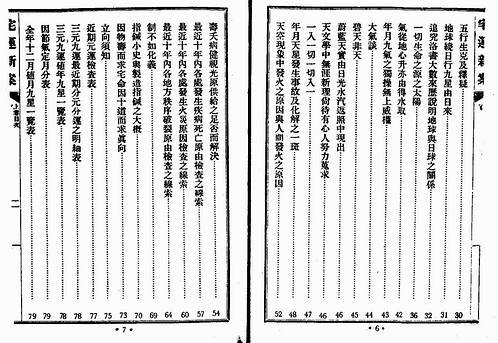 宅運新案
五行生克及釋疑 30
地球繞日行九星由日來 31
追究洛書大數來歷說明地球與日球之關係 32
一切生命之源之太陽 36
氣從地心升亦由得水取 42
年月九氣之獨操無上威權 43
大氣談 44
碧天非天 45
蔚藍天實由日光水汽返照中現出 46
天文學中無涯新理尚待有心人努力蒐求 46
一入一切一切入一 47
年月天星發生事故及化解之一斑 48
天空現象中發火之原因與人間發火之原因 52
• 6 •
壽夭病健視光原供給之足否而解決 54
最近十年內各處發生疾病死亡原由檢查之線索 57
最近十年內各處發生火災原因檢查之線索 60
最近十年內各地方秩序破裂原由檢查之線索 64
制不如化義 69
指鍼小史與製造指鍼之大概 70
因物壽而求宅命因十道而求眞向 74
立向須知 75
近期元運檢查表 77
三元九運最近期分元分運之明細表 78
三元九運値年九星一覽表 78
因節氣定月分表 79
全年十二月値月九星一覽表 79
宅運新案
• 7 •